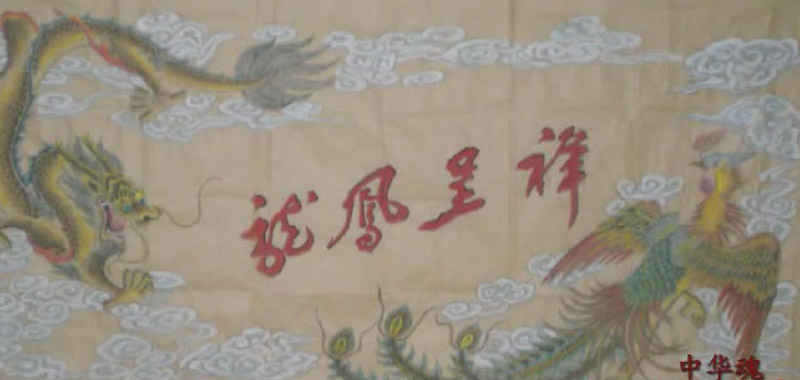 龍鳳呈祥
中华魂